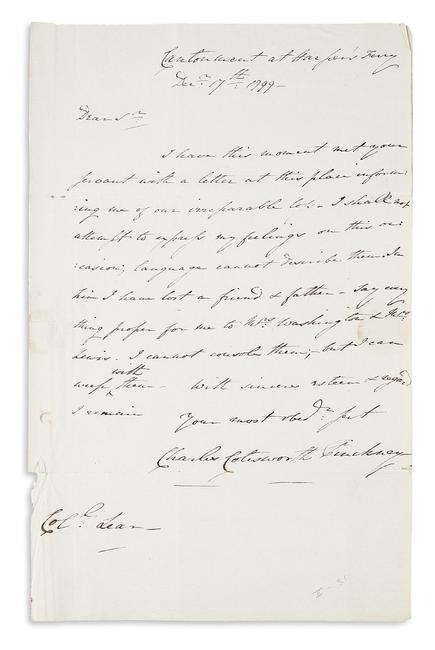 Cantonment at Harper's Ferry
Decr. 17th. 1799–
Dear Sr
I have this moment met your
servant with a letter at this place inform-
:ing me of our irreparable loss – I shall not
attempt to express my feelings on this oc-
:casion; language cannot describe them. In
him I have lost a friend & father – Say every
thing proper for me to Mrs. Washington & Mrs.
Lewis. I cannot console them; but I can
weep with them – With sincere esteem & regard
I remain Your most obedt. sert
Charles Cotesworth Pinckney
Colo. Lear –